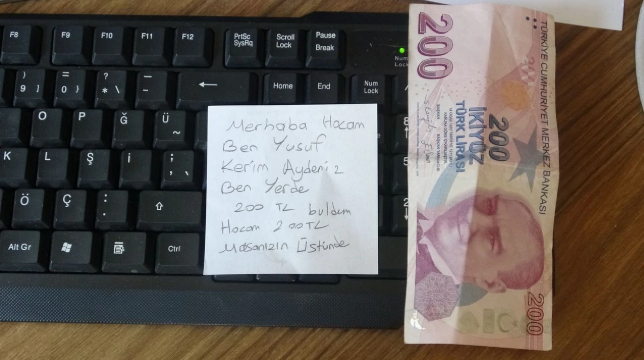 F8 F9 F10 F11 F12 PrtSc SysRq Scroll Lock Pause Break
Num Lock
) 9 ] } = 0 } ? * \ _ - Home End Num Lock
O P Ğ Ü ~
K L Ş İ ; ,
Ö Ç : .
Alt Gr Ctrl
Merhaba Hocam
Ben Yusuf
Kerim Aydeniz
Ben Yerde
200 TL buldum
Hocam 200TL
Masanızın Üstünde
200
TÜRKİYE CUMHURİYET MERKEZ BANKASI
200
İKİYÜZ
TÜRK LİRASI
200